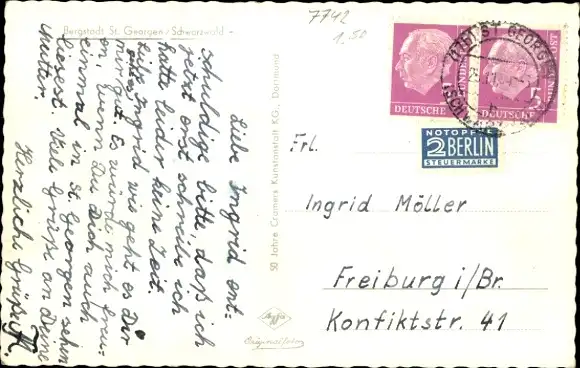 Bergstadt St. Georgen / Schwarzwald -
7742
1.50
Liebe Ingrid ent-
schuldige bitte daß ich
jetzt erst schreibe ich
hatte leider keine Zeit.
Liebe Ingrid wie geht es Dir
mir gut. Es würde mich freu-
en wenn Du Dich auch
einmal in St. Georgen sehn
liesest. Viele Grüße an Deine
Mutter.
Herzliche Grüße
50 Jahre Cramers Kunstanstalt KG., Dortmund
Agfa
Originalfoto
DEUTSCHE BUNDESPOST
DEUTSCHE
5
ST. GEORGEN
NOTOPFER
2 BERLIN
STEUERMARKE
Frl.
Ingrid Möller
Freiburg i/Br.
Konfiktstr. 41